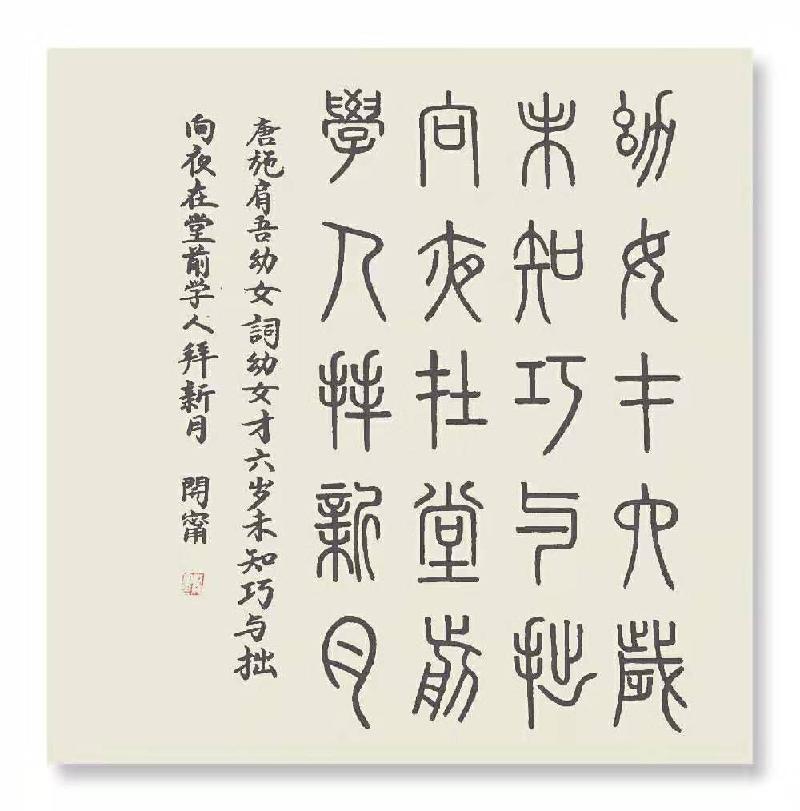 幼女才六歲
未知巧与拙
向夜在堂前
學人拜新月
唐施肩吾幼女詞幼女才六岁未知巧与拙
向夜在堂前学人拜新月 開甯